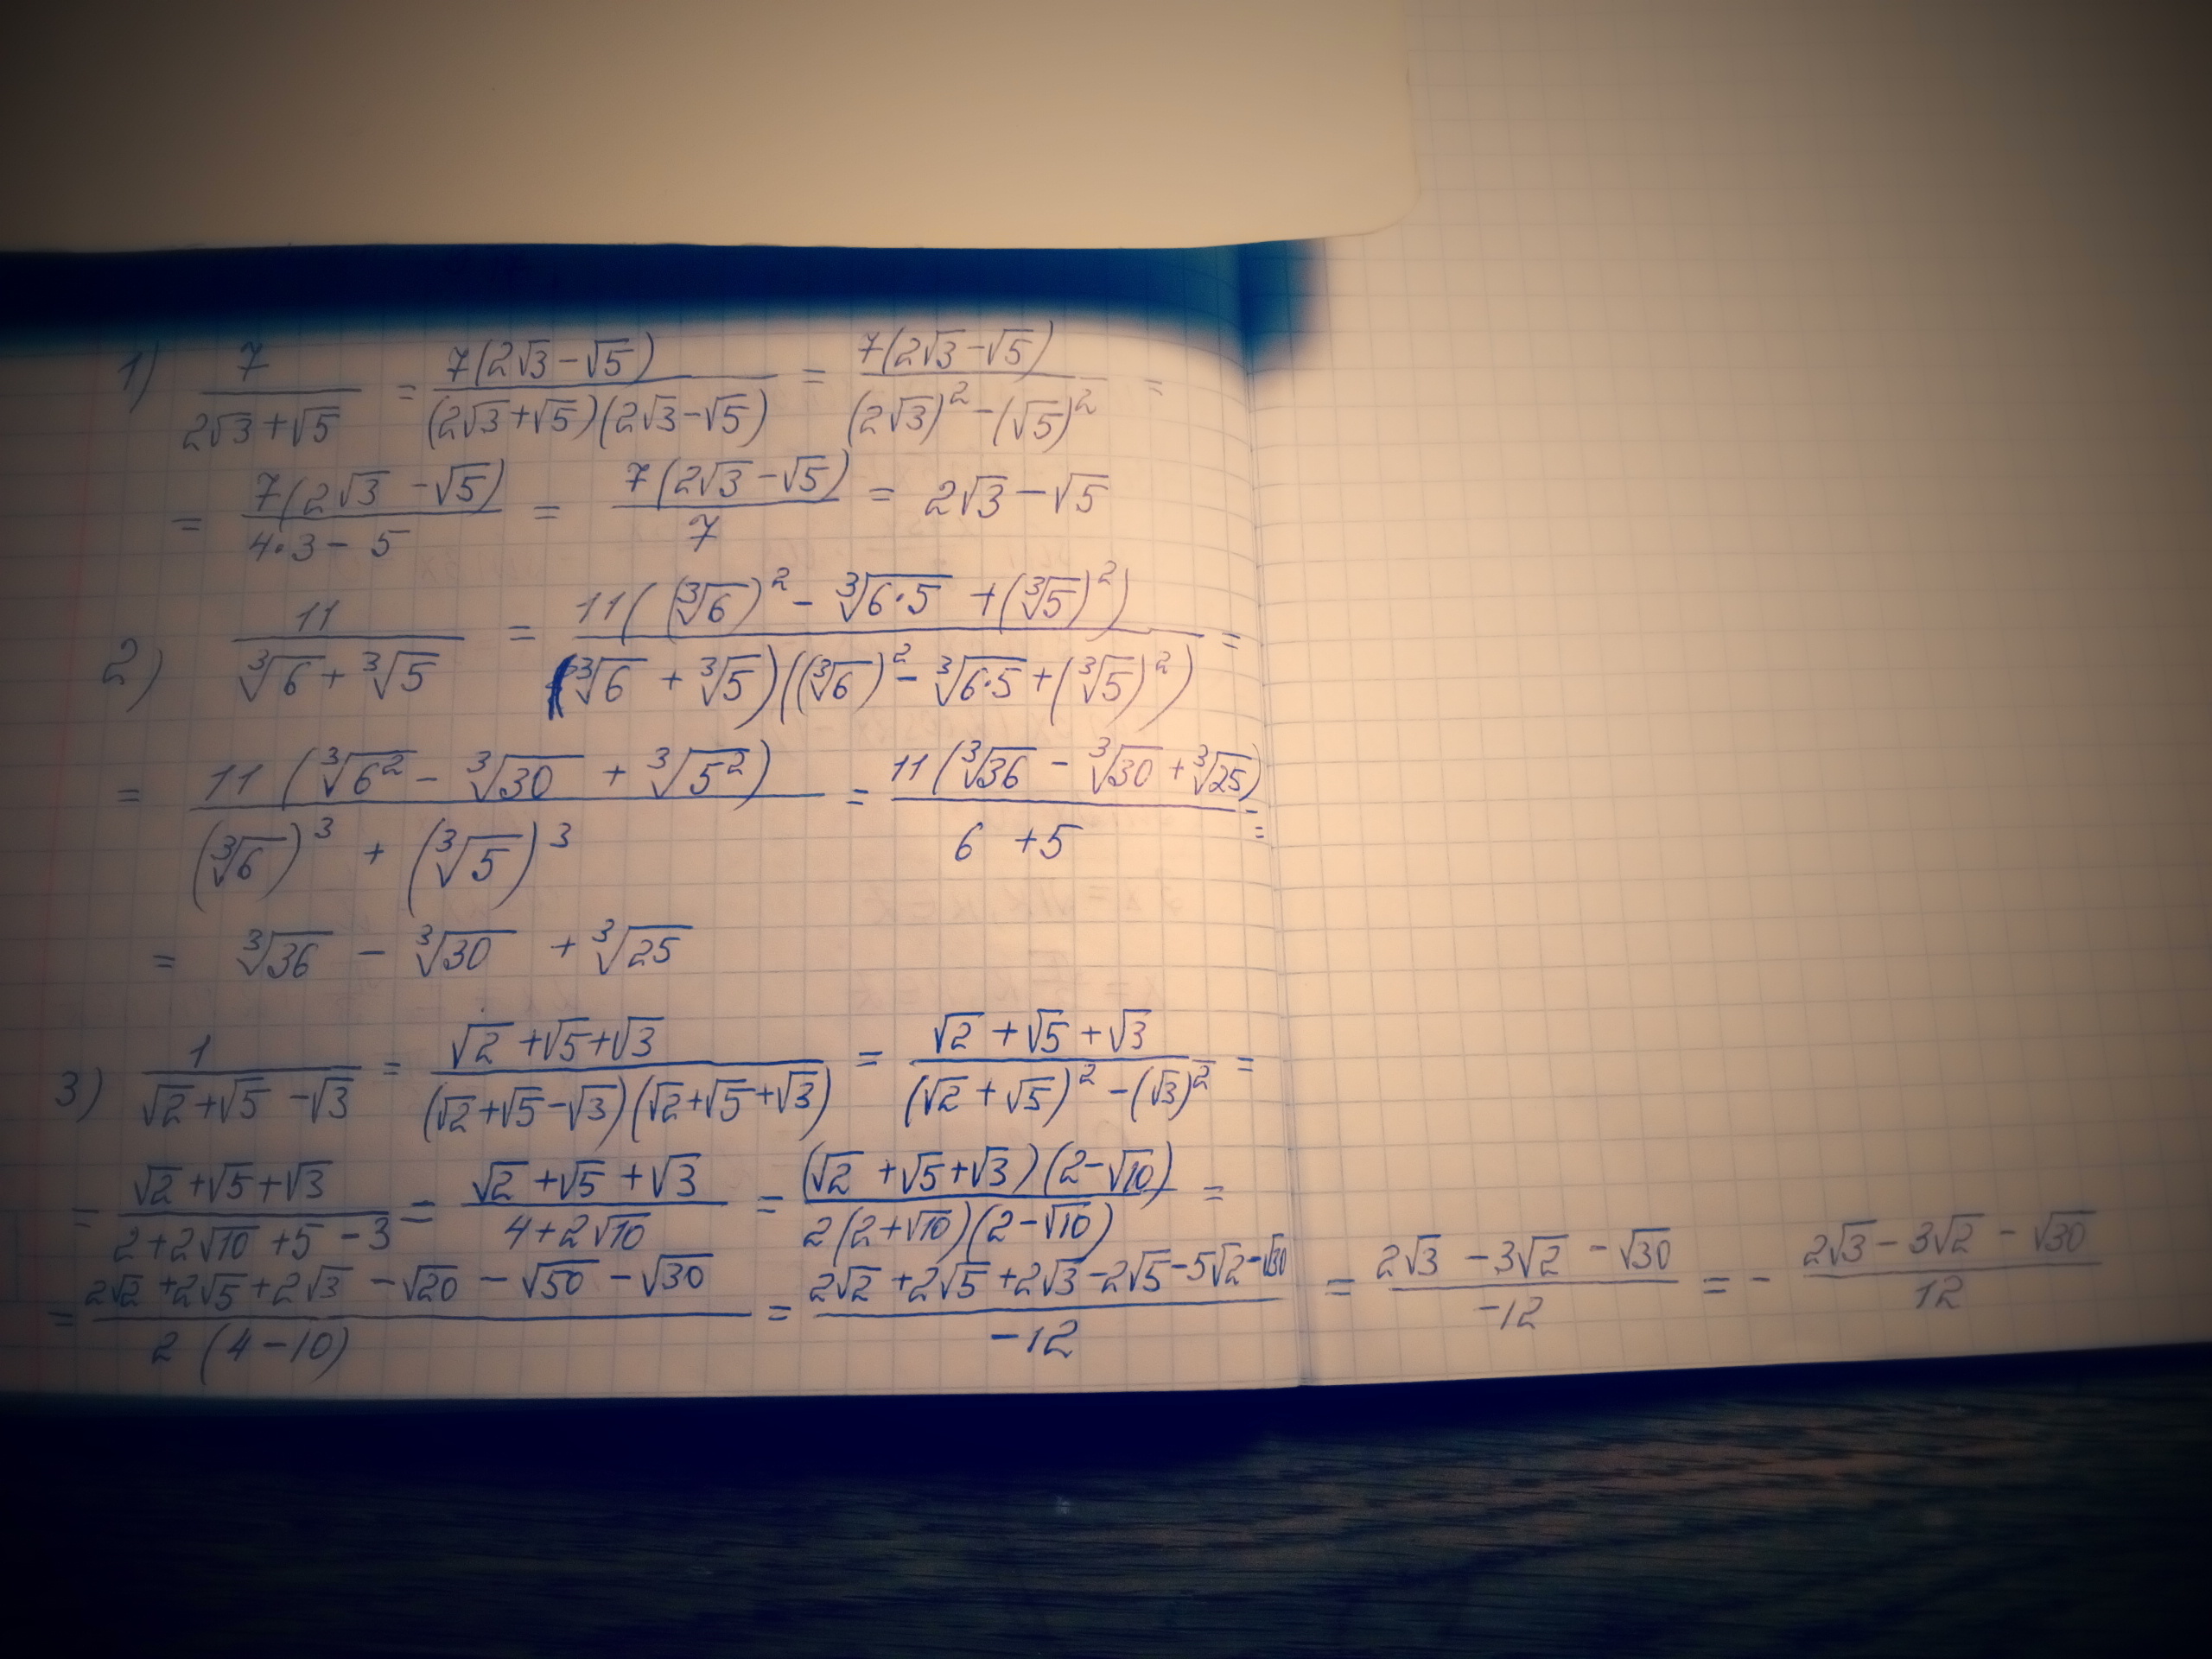 1) 7/(2√3+√5) = 7(2√3−√5)/((2√3+√5)(2√3−√5)) = 7(2√3−√5)/((2√3)²−(√5)²) =
= 7(2√3−√5)/(4·3−5) = 7(2√3−√5)/7 = 2√3−√5
2) 11/(∛6+∛5) = 11((∛6)²−∛(6·5)+(∛5)²)/((∛6+∛5)((∛6)²−∛(6·5)+(∛5)²)) =
= 11(∛(6²)−∛30+∛(5²))/((∛6)³+(∛5)³) = 11(∛36−∛30+∛25)/(6+5) =
= ∛36−∛30+∛25
3) 1/(√2+√5−√3) = (√2+√5+√3)/((√2+√5−√3)(√2+√5+√3)) = (√2+√5+√3)/((√2+√5)²−(√3)²) =
= (√2+√5+√3)/(2+2√10+5−3) = (√2+√5+√3)/(4+2√10) = (√2+√5+√3)(2−√10)/(2(2+√10)(2−√10)) =
= (2√2+2√5+2√3−√20−√50−√30)/(2(4−10)) = (2√2+2√5+2√3−2√5−5√2−√30)/(−12) = (2√3−3√2−√30)/(−12) = −(2√3−3√2−√30)/12